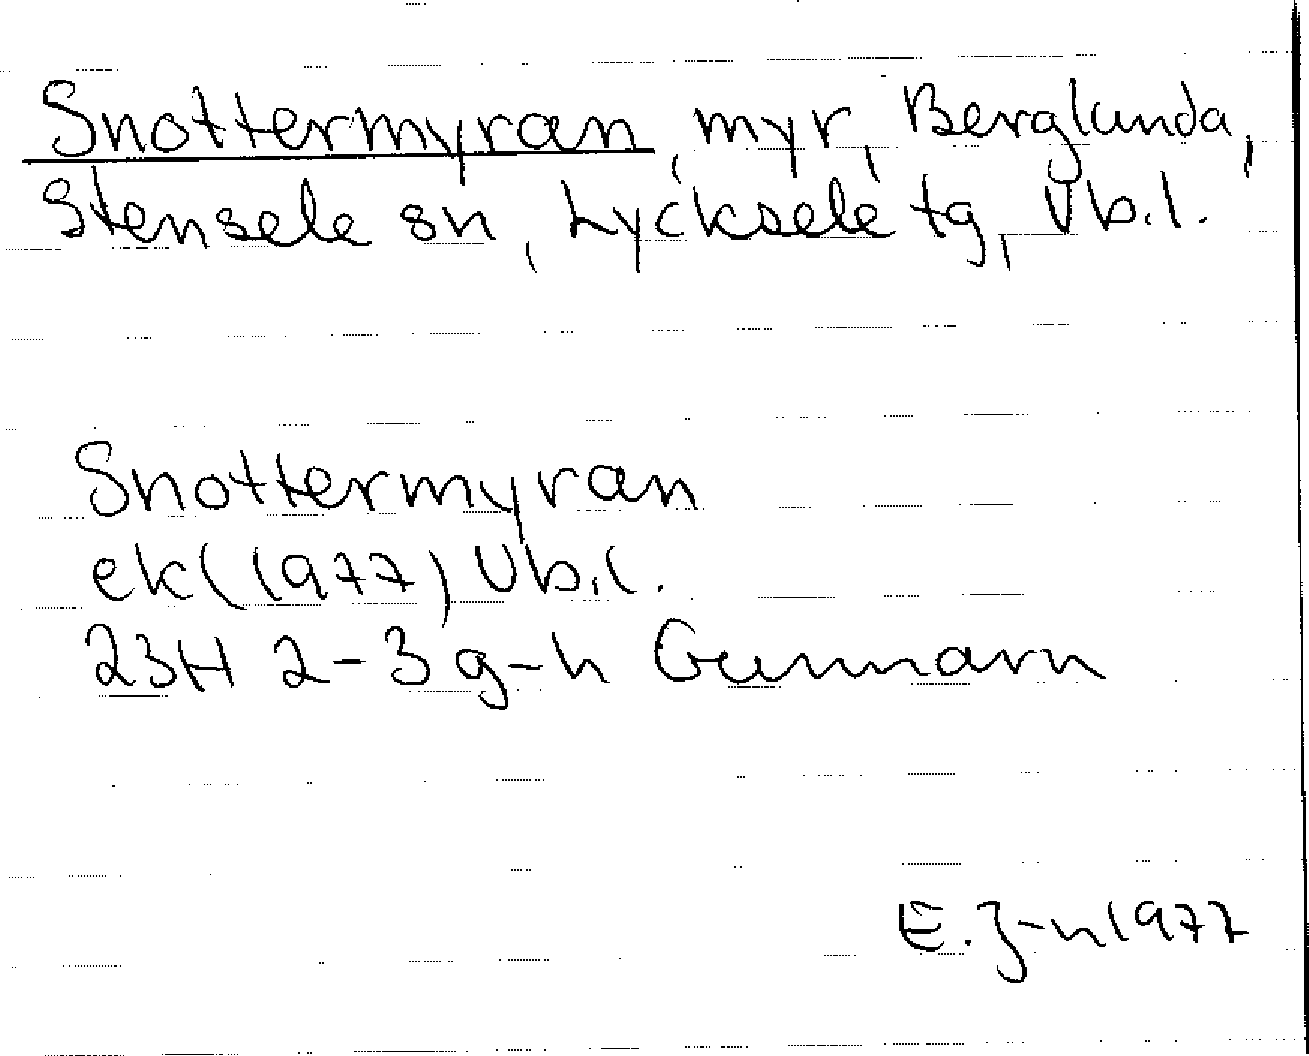 Snottermyran, myr, Berglunda,
Stensele sn, Lycksele tg, Vb.l.
Snottermyran
ek (1977) Vb.l.
23H 2-3 g-h Gunnarn
E. J-n 1977